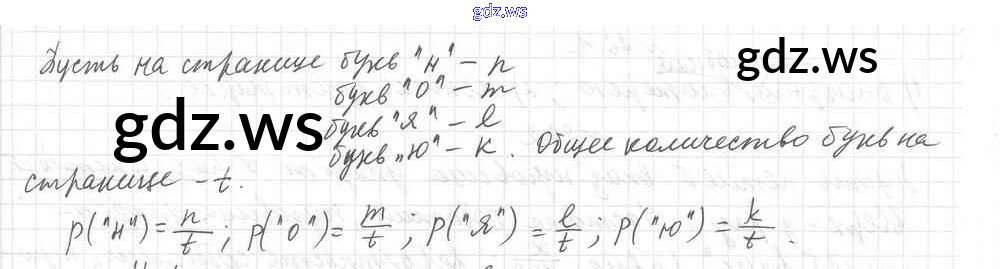 gdz.ws
Пусть на странице букв "н" - n
gdz.ws
букв "о" - m
gdz.ws
букв "я" - l
букв "ю" - k. Общее количество букв на
странице - t.
p("н") = n/t; p("о") = m/t; p("я") = l/t; p("ю") = k/t.